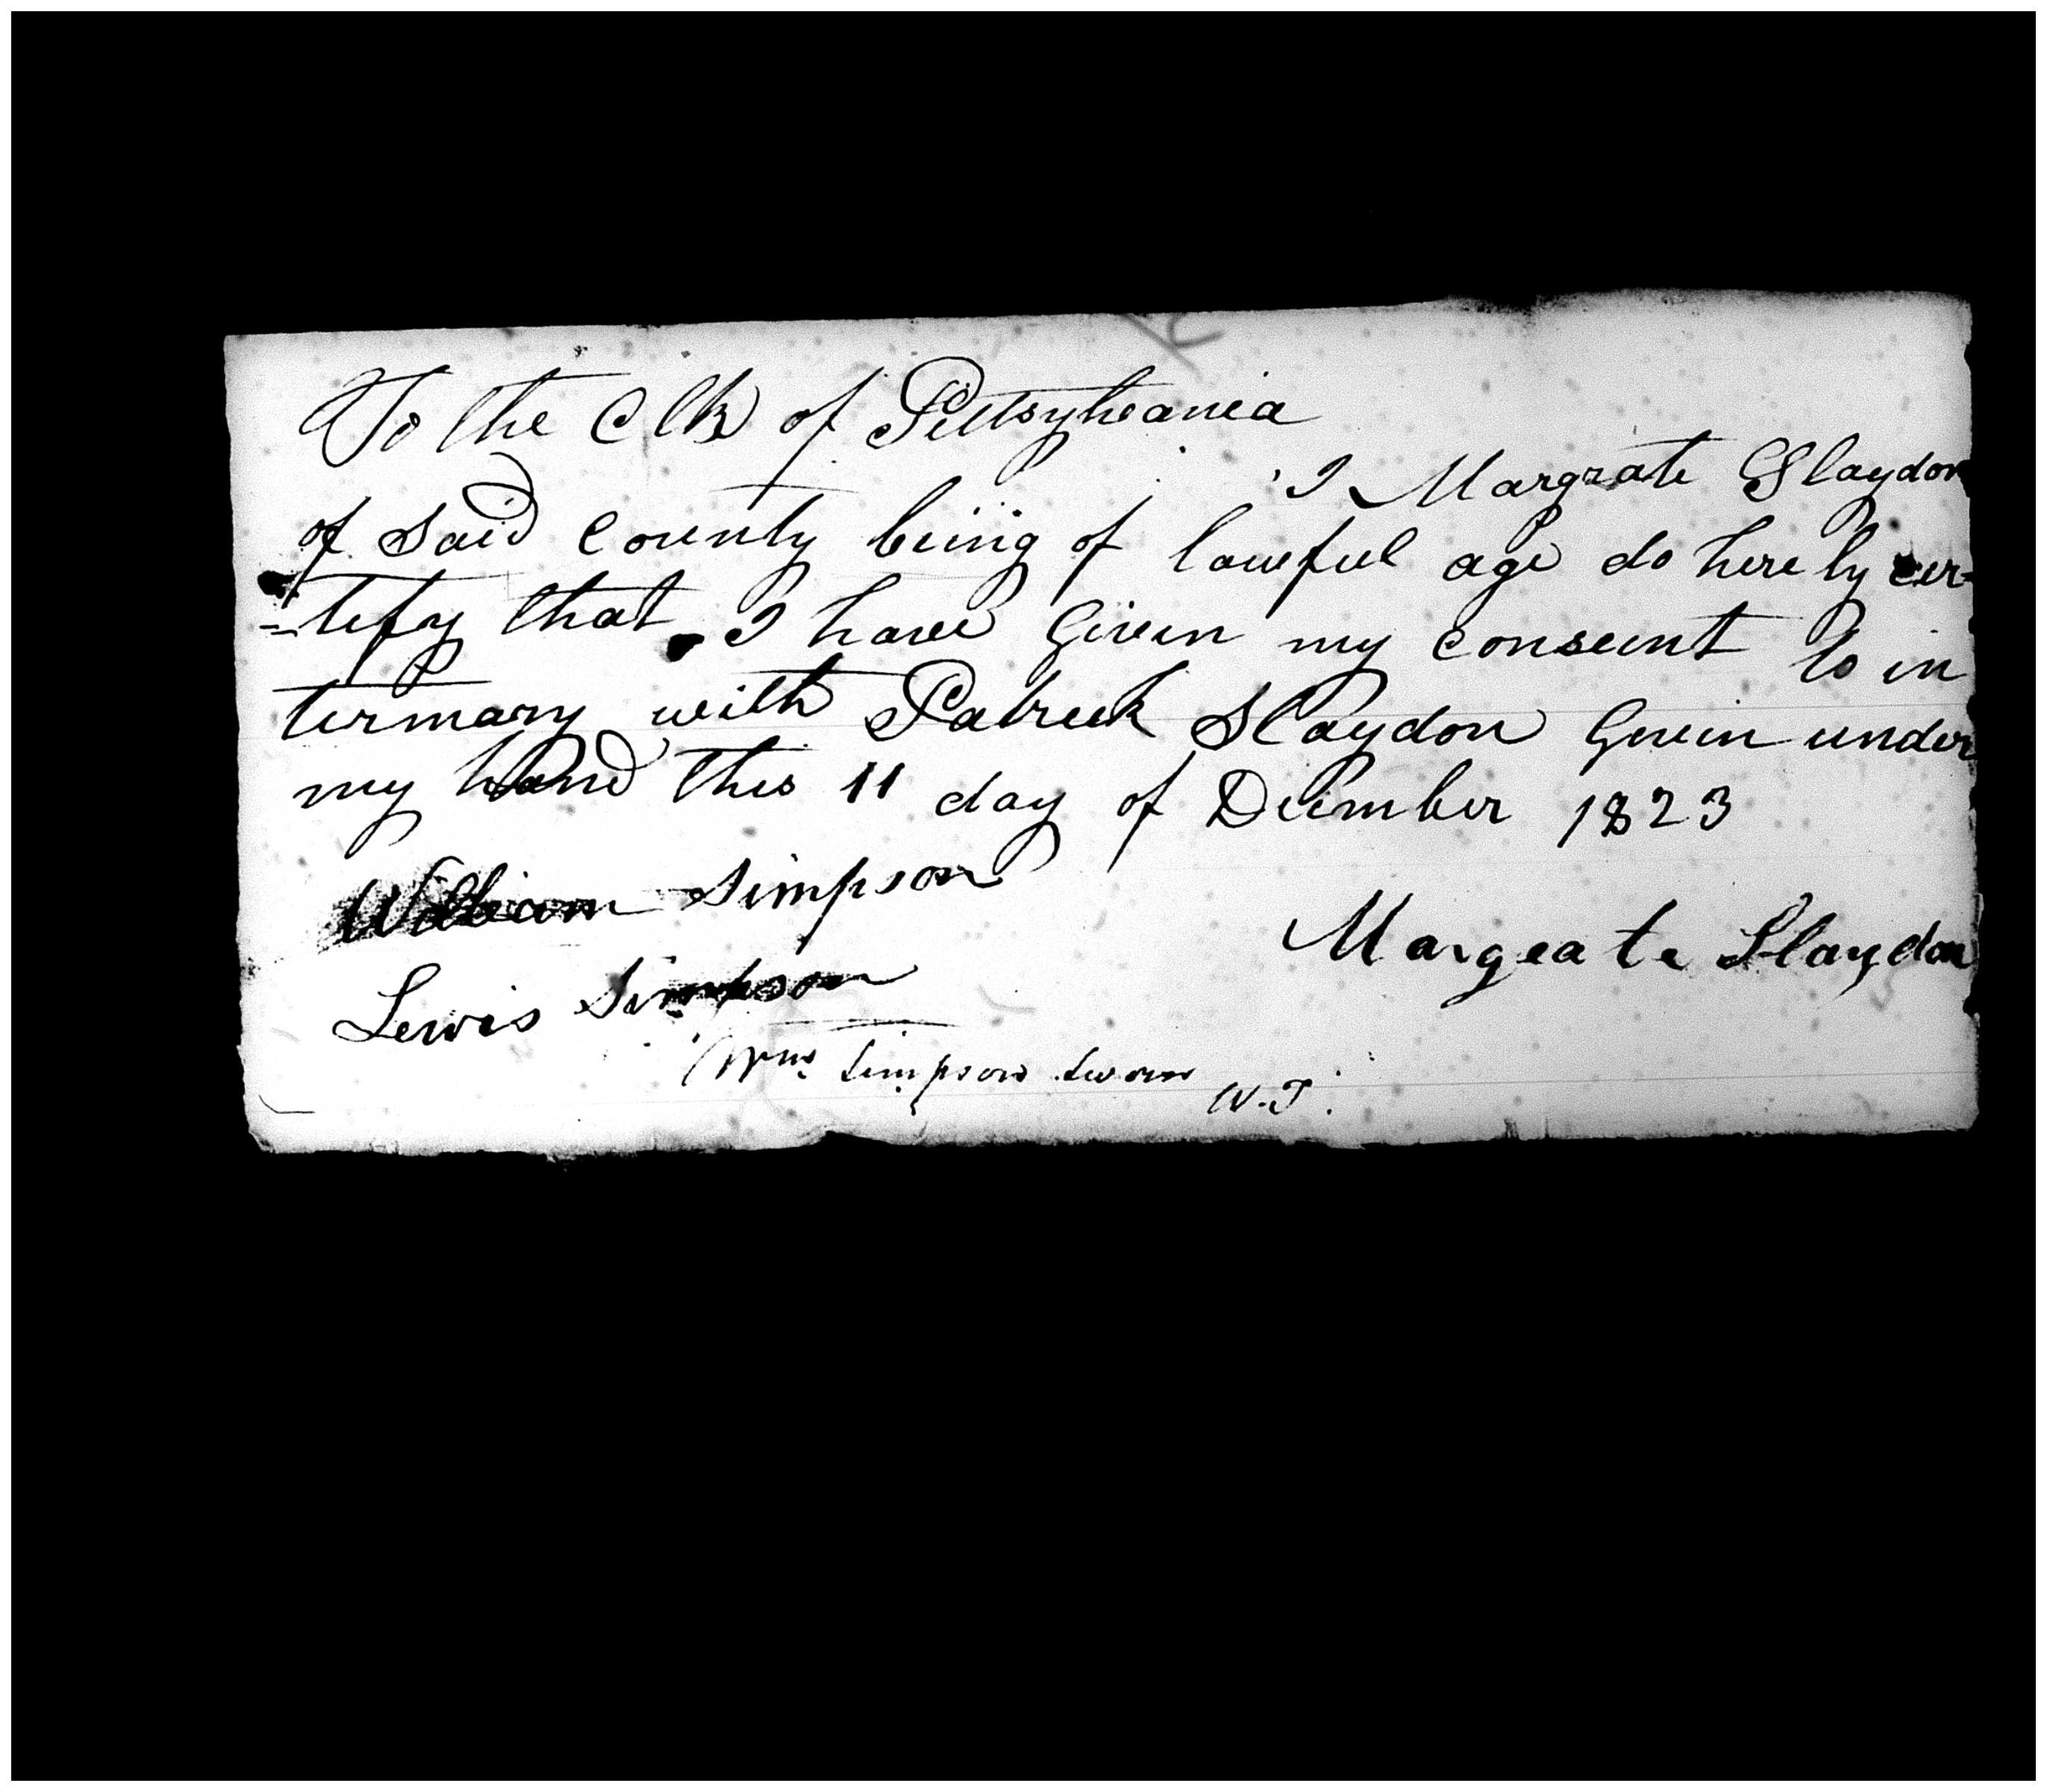 To the Clk of Pittsylvania
I Margrate Slaydon
of said County being of lawful age do hereby cer-
=tify that I have Given my conseent to in
termary with Patrick Slaydon Given under
my hand this 11 day of December 1823
William Simpson
Margeate Slaydon
Lewis Simpson
Wm. Simpson sworn
W.T.